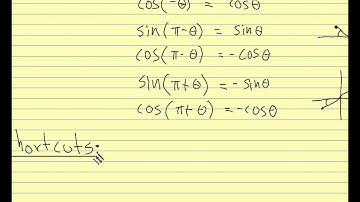 cos(-θ) = cosθ
sin(π-θ) = sinθ
cos(π-θ) = -cosθ
sin(π+θ) = -sinθ
cos(π+θ) = -cosθ
hortcuts: